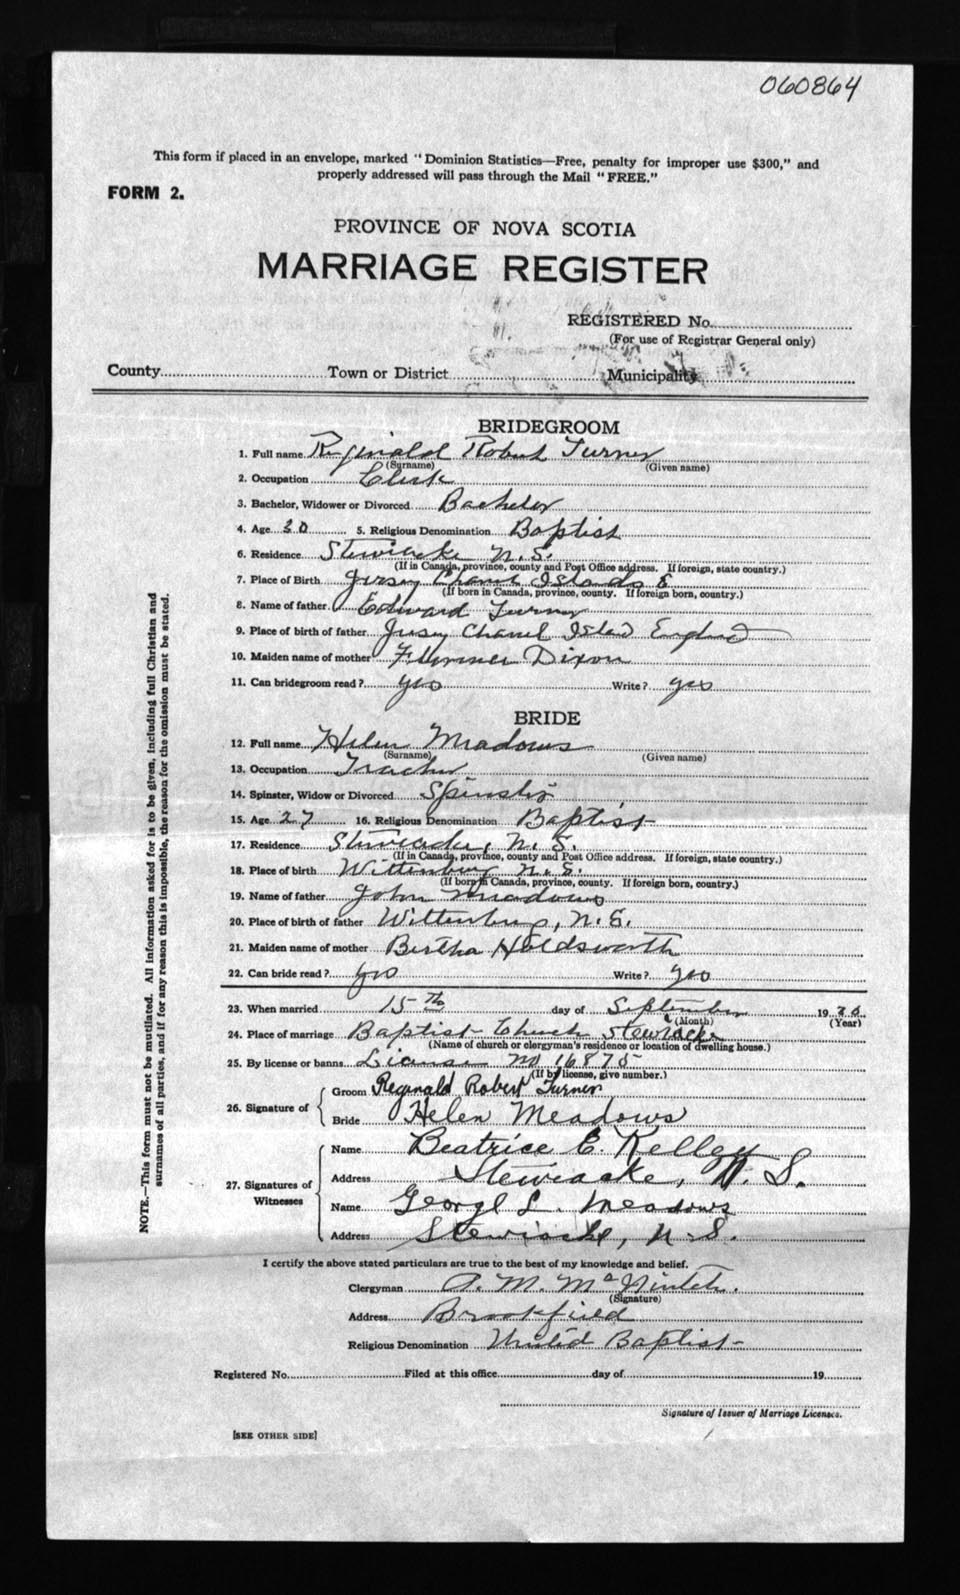 060864
This form if placed in an envelope, marked "Dominion Statistics—Free, penalty for improper use $300," and
properly addressed will pass through the Mail "FREE."
FORM 2.
PROVINCE OF NOVA SCOTIA
MARRIAGE REGISTER
REGISTERED No.
(For use of Registrar General only)
County Town or District Municipality
BRIDEGROOM
1. Full name Reginald Robert Turner
(Surname) (Given name)
2. Occupation Clerk
3. Bachelor, Widower or Divorced Bachelor
4. Age 30 5. Religious Denomination Baptist
6. Residence Stewiacke N.S.
(If in Canada, province, county and Post Office address. If foreign, state country.)
7. Place of Birth Jersey Chanel Islands E
(If born in Canada, province, county. If foreign born, country.)
8. Name of father Edward Turner
9. Place of birth of father Jersey Chanel Island England
10. Maiden name of mother Florence Dixon
11. Can bridegroom read? yes Write? yes
BRIDE
12. Full name Helen Meadows
(Surname) (Given name)
13. Occupation Teacher
14. Spinster, Widow or Divorced Spinster
15. Age 27 16. Religious Denomination Baptist
17. Residence Stewiacke, N. S.
(If in Canada, province, county and Post Office address. If foreign, state country.)
18. Place of birth Wittenburg N.S.
(If born in Canada, province, county. If foreign born, country.)
19. Name of father John Meadows
20. Place of birth of father Wittenburg, N.S.
21. Maiden name of mother Bertha Holdsworth
22. Can bride read? yes Write? yes
23. When married 15th day of September 19
(Month) (Year)
24. Place of marriage Baptist Church Stewiacke
(Name of church or clergyman's residence or location of dwelling house.)
25. By license or banns License No 16875
(If by license, give number.)
26. Signature of Groom Reginald Robert Turner
Bride Helen Meadows
27. Signatures of Witnesses Name Beatrice E. Kelley
Address Stewiacke, N. S.
Name George L. Meadows
Address Stewiacke, N.S.
I certify the above stated particulars are true to the best of my knowledge and belief.
Clergyman
(Signature)
Address Brookfield
Religious Denomination United Baptist
Registered No. Filed at this office day of 19
Signature of Issuer of Marriage Licenses.
[SEE OTHER SIDE]
NOTE.—This form must not be mutilated. All information asked for is to be given, including full Christian and
surnames of all parties, and if for any reason this is impossible, the reason for the omission must be stated.